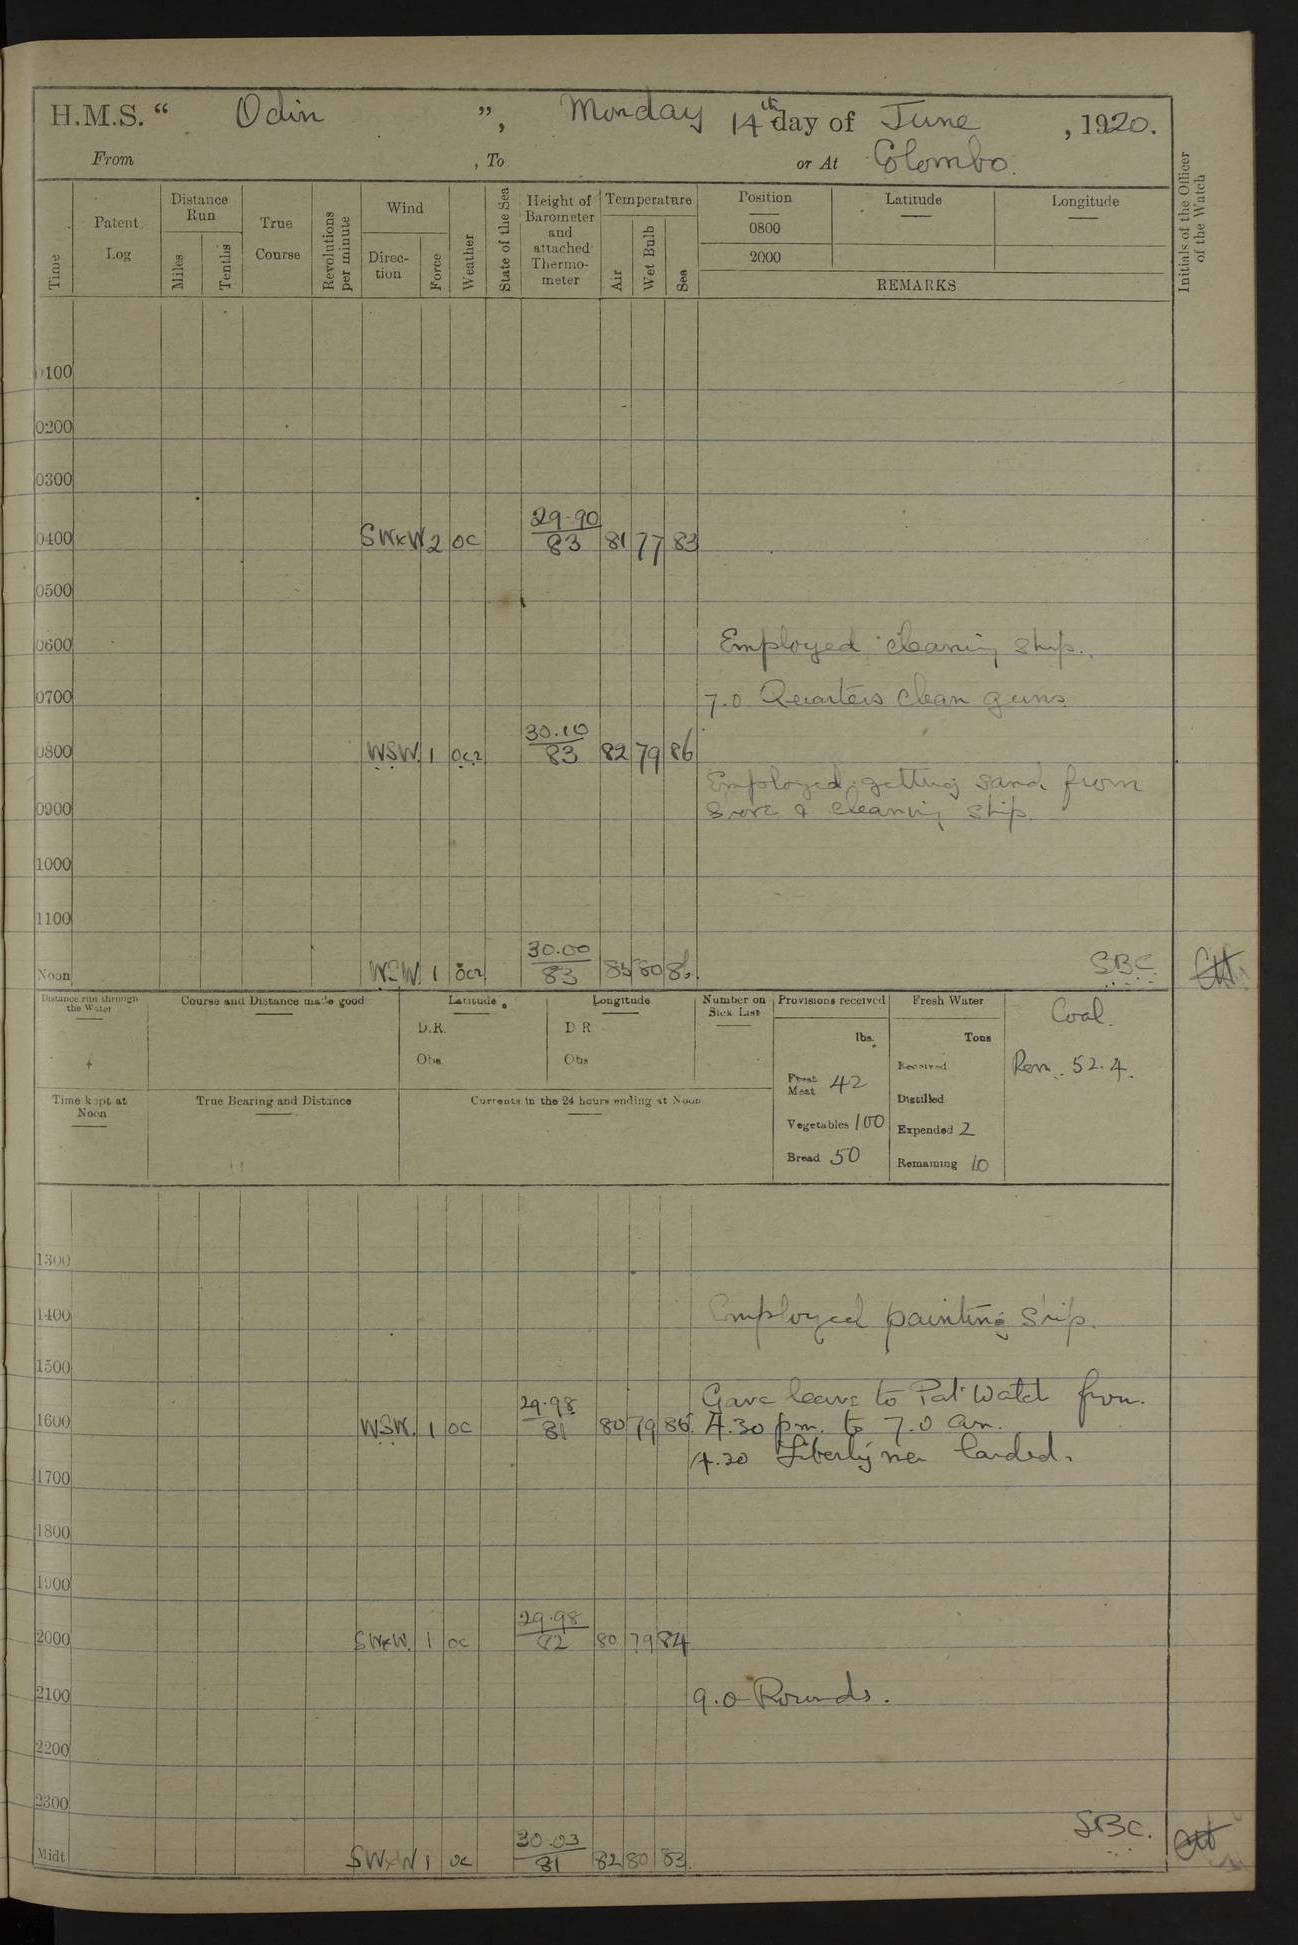 H.M.S. “ Odin ”, Monday 14th day of June, 1920.
From , To or At Colombo.
Time
Patent Log
Distance Run
Miles
Tenths
True Course
Revolutions per minute
Wind
Direction
Force
Weather
State of the Sea
Height of Barometer and attached Thermometer
Temperature
Air
Wet Bulb
Sea
Position
0800
2000
Latitude
Longitude
REMARKS
Initials of the Officer of the Watch
0100
0200
0300
0400 SWxW 2 oc 29.90/83 81 77 83
0500
0600 Employed cleaning ship.
0700 7.0 Quarters clean guns
0800 WSW. 1 ocr 30.10/83 82 79 86
Employed getting sand from
0900 shore & cleaning ship.
1000
1100
Noon WSW. 1 ocr 30.00/83 80 SBC
Distance run through the Water
Course and Distance made good
Latitude
D.R.
Obs.
Longitude
D R
Obs
Number on Sick List
Provisions received
lbs.
Fresh Meat 42
Vegetables 100
Bread 50
Fresh Water
Tons
Received
Distilled
Expended 2
Remaining 10
Coal.
Rem. 52.4.
Time kept at Noon
True Bearing and Distance
Currents in the 24 hours ending at Noon
1300
1400 Employed painting ship.
1500
Gave leave to Pt Watch from
1600 WSW. 1 oc 29.98/81 80 79 86 4.30 pm. to 7.0 am.
4.30 Liberty men landed.
1700
1800
1900
2000 SWxW. 1 oc 29.98/82 80 79 84
2100 9.0 Rounds.
2200
2300
SBC.
Midt SWxW 1 oc 30.03/81 82 80 83.